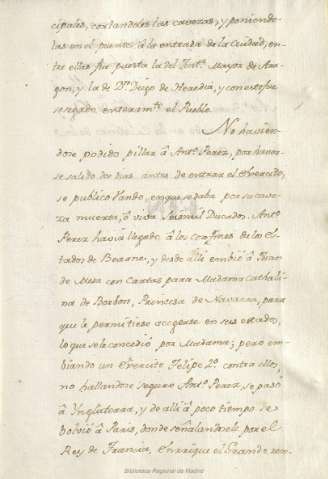 cipales, cortandoles las cavezas, y poniendo-
las en el puente à la entrada de la Ciudad, en-
tre ellas fue puesta la del Just.ª Mayor de Ara-
gon, y la de Dⁿ Diego de Heredia, y con esto fue
sosegado enteram.te el Pueblo.
No havien-
dose podido pillar à Ant.º Perez, por haver-
se salido dos dias antes de entrar el Exercito,
se publicó Vando, en que se daba por su cave-
za muerto, ò vivo seis mil Ducados. Ant.º
Perez havia llegado à los confines de los Es-
tados de Bearne, y desde alli embió à Juan
de Mesa con Cartas para Madama Cathali-
na de Borbon, Princesa de Navarra, para
que le permitiese acogerse en sus estados,
lo que se le concedió por Madama; pero em-
biando un Exercito Felipe 2.º contra ellos,
no hallandose seguro Ant.º Perez, se pasó
à Ynglaterra, y de alli à poco tiempo se
bolvió à Paris, donde señalandole por el
Rey de Francia, Enrique el Grande ren-
Biblioteca Regional de Madrid